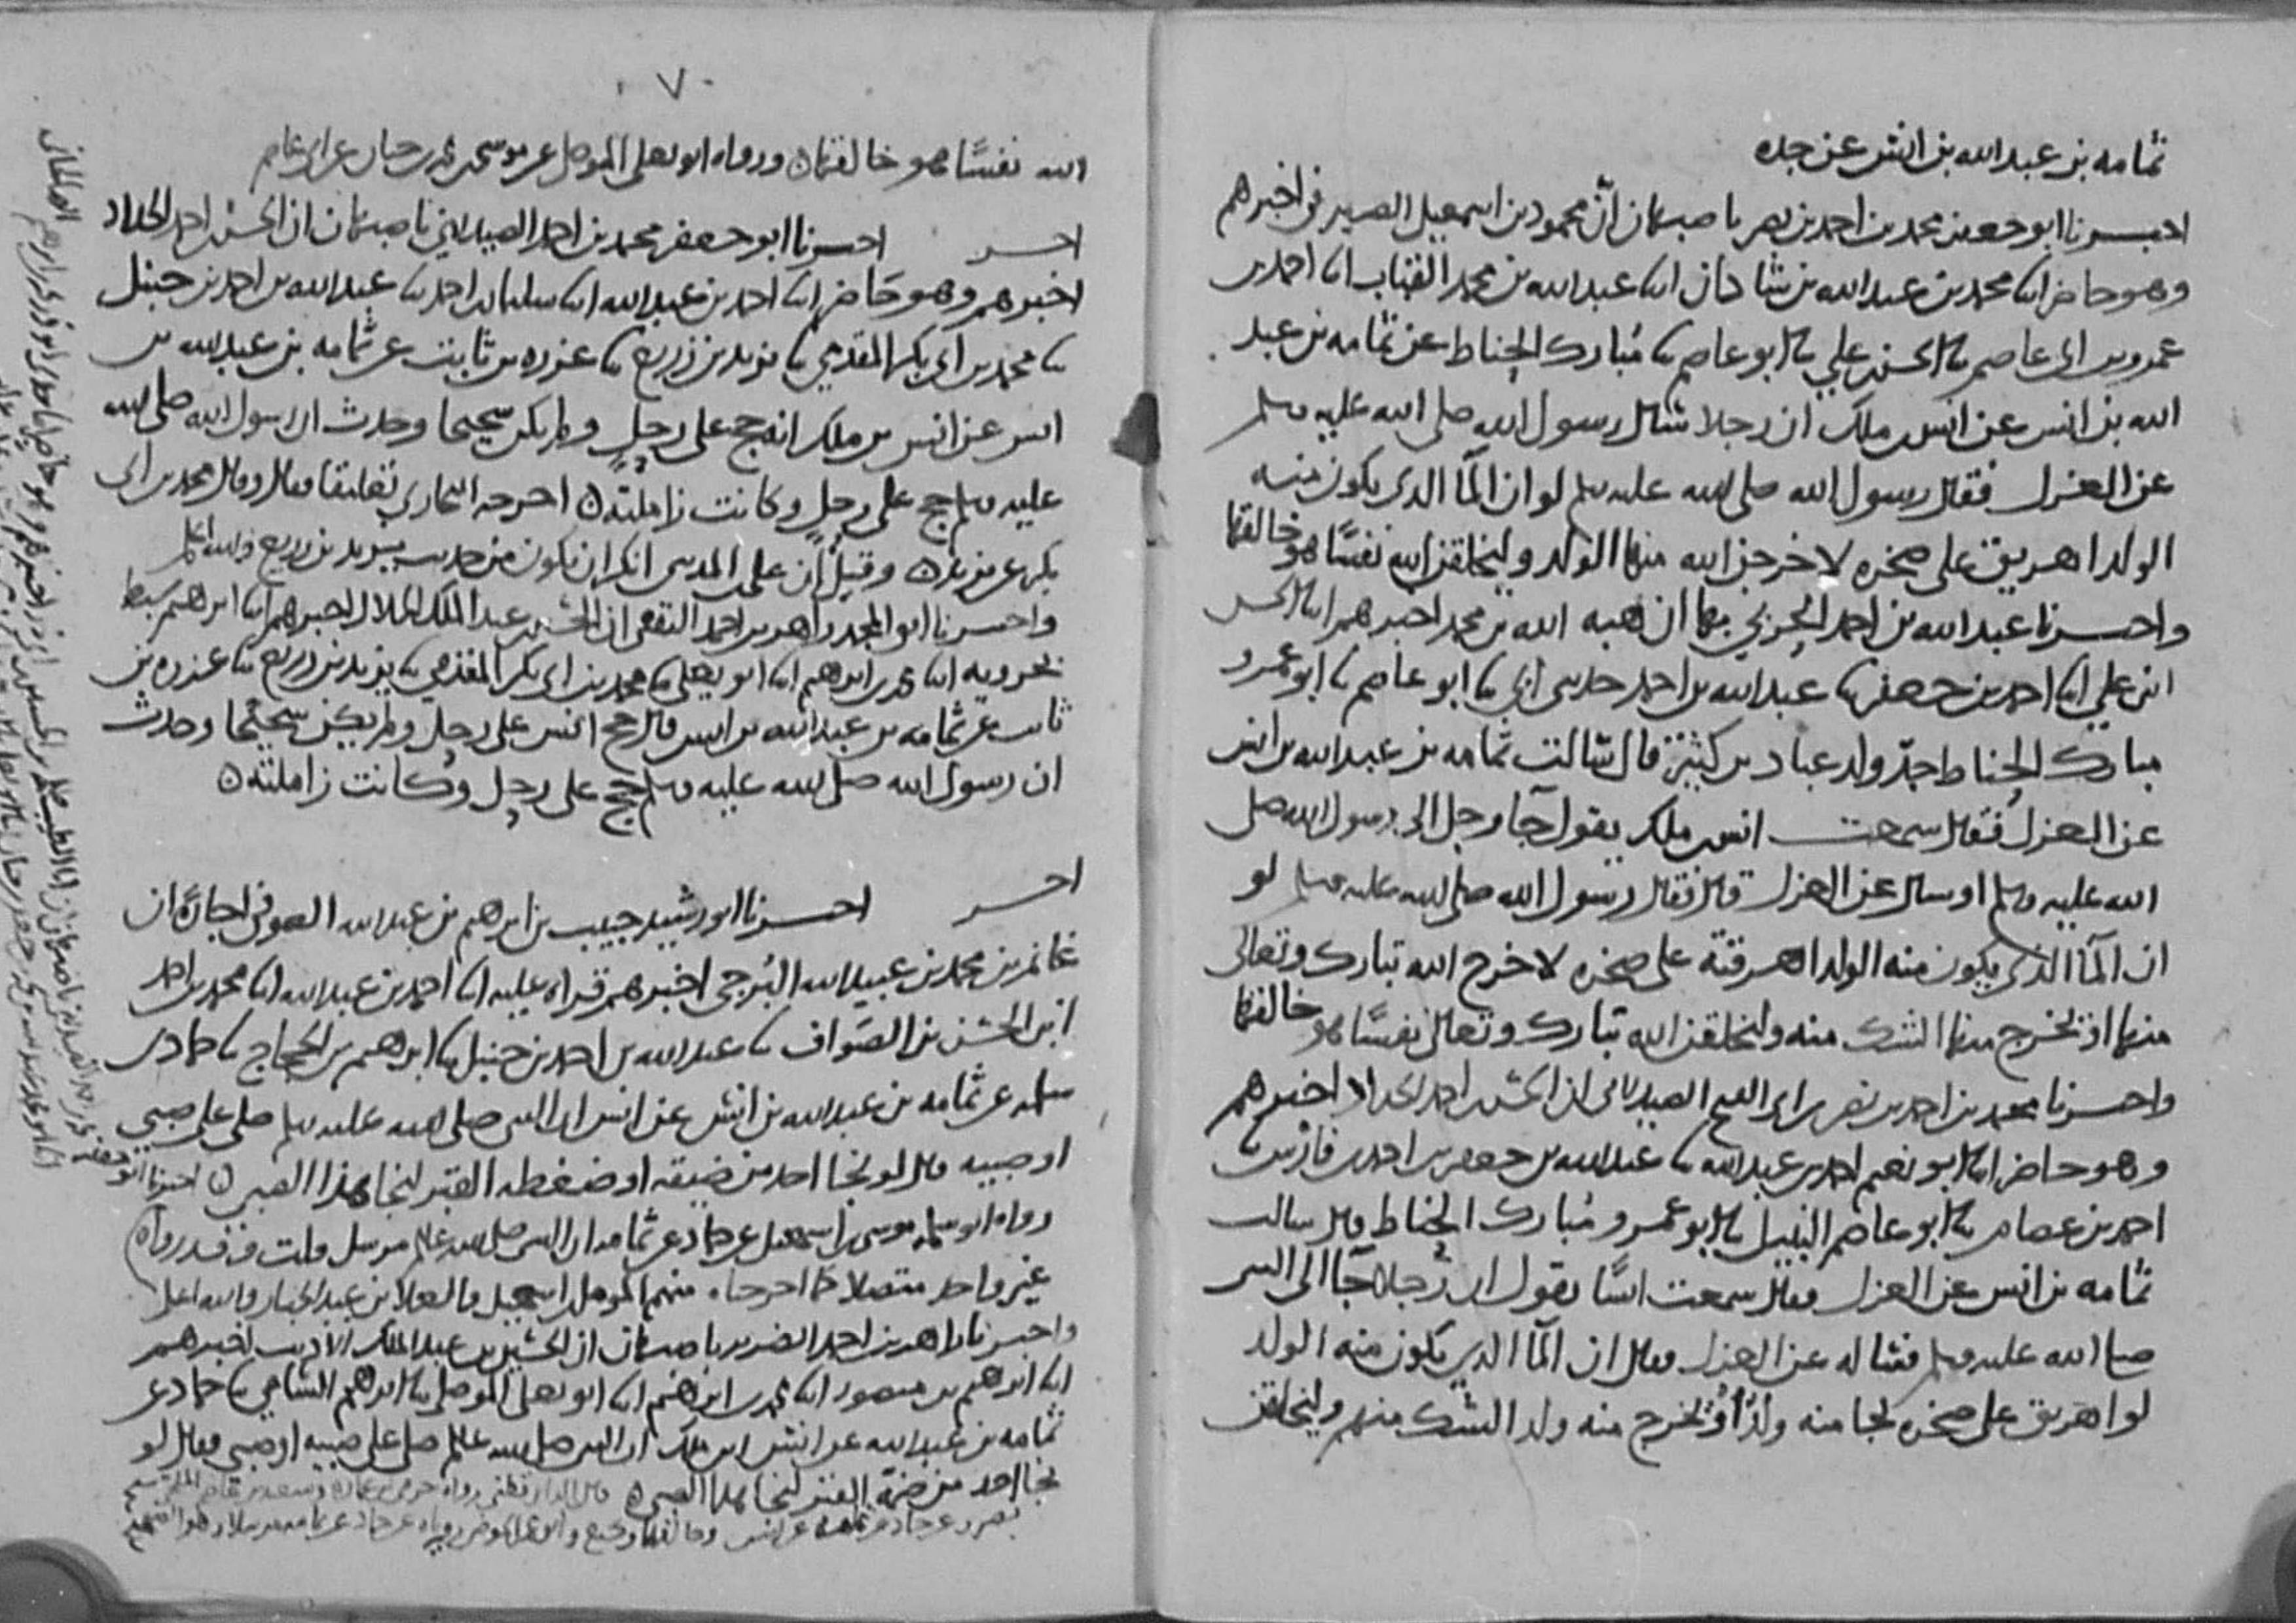 ثمامه بن عبد الله بن انس عن جده
اخبرنا ابو جعفر محمد بن احمد بن نصر باصبهان ان محمود بن اسمعيل الصيرفي اخبرهم
وهو حاضر ابنا محمد بن عبد الله بن شاذان ابنا عبد الله بن محمد القباب ابنا احمد بن
عمرو بن ابي عاصم نا الحسن بن علي نا ابو عاصم نا مُبارك الخياط عن ثمامه بن عبد
الله بن انس عن انس بن ملك ان رجلا سال رسول الله صلى الله عليه وسلم
عن العزل فقال رسول الله صلى الله عليه وسلم لو ان المآ الذي يكون منه
الولد اهريق على صخره لاخرجن الله منها الولد وليخلقن الله نفسًا هو خالقها
واخبرنا عبد الله بن احمد الحربي بها ان هبه الله بن محمد اخبرهم ابنا الحسن
ابن علي ابنا احمد بن جعفر نا عبد الله بن احمد حدثني ابي نا ابو عاصم نا ابو عمرو
مبارك الخياط جدّ ولد عباد بن كثير قال سالت ثمامه بن عبد الله بن انس
عن العزل فقال سمعت انس بن ملك يقول جآ رجل الى رسول الله صلى
الله عليه وسلم وسال عن العزل قال فقال رسول الله صلى الله عليه وسلم لو
ان المآ الذي يكون منه الولد اهرقته على صخره لاخرج الله تبارك وتعالى
منها او يخرج منها الشك منه وليخلقن الله تبارك وتعالى نفسًا هو خالقها
واخبرنا محمد بن احمد بن نصر بن ابي الفتح الصيدلاني ان الحسن بن احمد الحداد اخبرهم
وهو حاضر ابنا ابو نعيم احمد بن عبد الله نا عبد الله بن جعفر بن احمد بن فارس نا
احمد بن عصام نا ابو عاصم النبيل نا ابو عمرو مُبارك الخياط قال سالت
ثمامه بن انس عن العزل فقال سمعت انسًا يقول ان رجلا جآ الى النبي
صلى الله عليه وسلم فساله عن العزل فقال ان المآ الذي يكون منه الولد
لو اهريق على صخره لجا منه ولدٌ او لخرج منه ولد الشك منهم وليخلقن
٧
الله نفسًا هو خالقها ورواه ابو يعلى الموصلي عن موسى بن محمد بن حيان عن ابي عاصم
اخر اخبرنا ابو جعفر محمد بن احمد الصيدلاني باصبهان ان الحسن بن احمد الحداد
اخبرهم وهو حَاضر ابنا احمد بن عبد الله ابنا سليمان بن احمد نا عبد الله بن احمد بن حنبل
نا محمد بن ابي بكر المقدمي نا يزيد بن زريع نا عزره بن ثابت عن ثمامه بن عبد الله بن
انس عن انس بن ملك انه حج على رحلٍ ولم يكن شحيحا وحدث ان رسول الله صلى الله
عليه وسلم حج على رحلٍ وكانت زاملته اخرجه البخاري تعليقا فقال وقال محمد بن ابي
بكر عن يزيد وقيل ان علي بن المديني انكر ان يكون من حديث يزيد بن زريع والله اعلم
واخبرنا ابو المجد زاهر بن احمد الثقفي ان الحسين بن عبد الملك الخلال اخبرهم ابنا ابرهيم سبط
بحرويه ابنا محمد بن ابرهيم ابنا ابو يعلى نا محمد بن ابي بكر المقدمي نا يزيد بن زريع نا عزره بن
ثابت عن ثمامه بن عبد الله بن انس قال حج انس على رحل ولم يكن شحيحًا وحدث
ان رسول الله صلى الله عليه وسلم حج على رحل وكانت زاملته
اخر اخبرنا ابو رشيد حبيب بن ابرهيم بن عبد الله الصوفي اجازةً ان
غانم بن محمد بن عبيد الله البُرجي اخبرهم قراه عليه ابنا احمد بن عبد الله ابنا محمد بن احمد
ابن الحسن بن الصَواف نا عبد الله بن احمد بن حنبل نا ابرهيم بن الحجاج نا حماد بن
سلمه عن ثمامه بن عبد الله بن انس عن انس ان النبي صلى الله عليه وسلم صلى على صبي
او صبيه قال لو نجا احد من ضيقه او ضغطه القبر لنجا هذا الصبي
رواه ابو سلمه موسى بن اسمعيل عن حماد عن ثمامه ان النبي صلى الله عليه وسلم مرسل قلت وقد رواه
غير واحد متصلا كما اخرجناه منهم المومل بن اسمعيل والعلا بن عبد الجبار والله اعلم
واخبرنا زاهر بن احمد الضرير باصبهان ان الحسين بن عبد الملك الاديب اخبرهم
ابنا ابرهيم بن منصور ابنا محمد بن ابرهيم ابنا ابو يعلى الموصلي نا ابرهيم الشامي نا حماد عن
ثمامه بن عبد الله عن انس بن ملك ان النبي صلى الله عليه وسلم صلى على صبيه او صبي فقال لو
نجا احد من ضمة القبر لنجا هذا الصبي قال الدارقطني رواه حرمي بن عماره وسعيد بن عاصم
عن حماد عن ثمامه عن انس وخالفهما وكيع رووه عن حماد عن ثمامه مرسلا وهو الصحيح